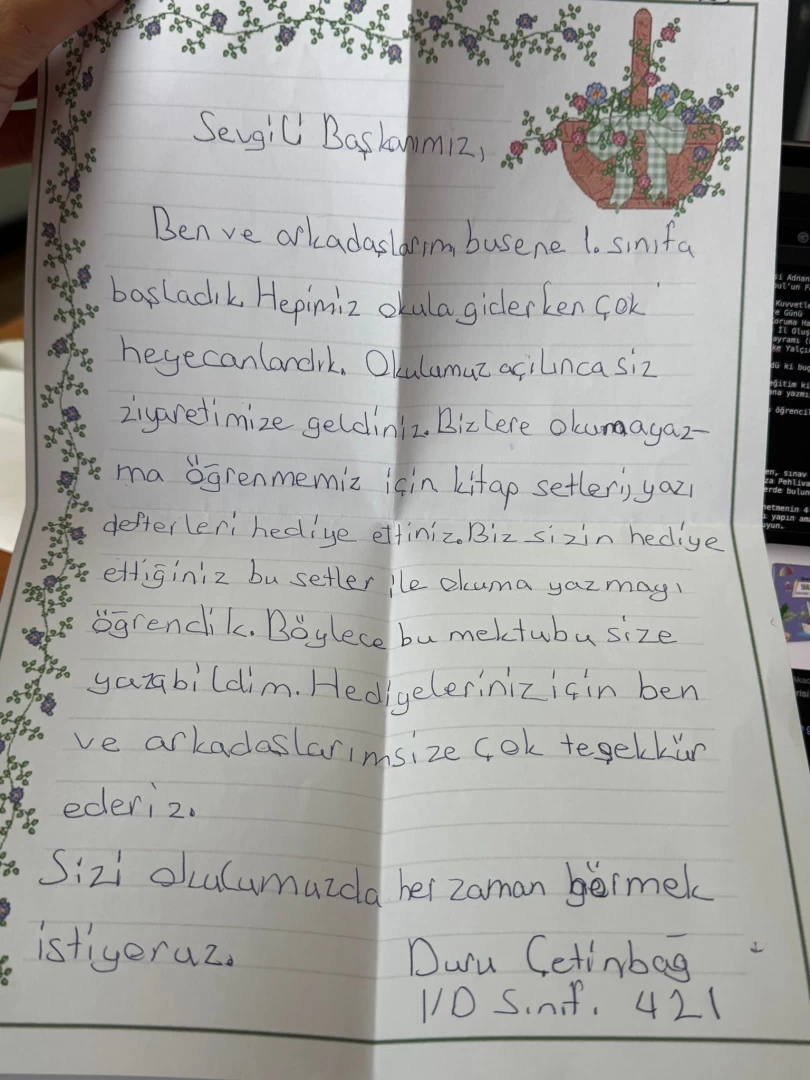 Sevgili Başkanımız,
Ben ve arkadaşlarım, bu sene 1. sınıfa
başladık. Hepimiz okula giderken çok
heyecanlandık. Okulumuz açılınca siz
ziyaretimize geldiniz. Bizlere okuma yaz-
ma öğrenmemiz için kitap setleri, yazı
defterleri hediye ettiniz. Biz sizin hediye
ettiğiniz bu setler ile okuma yazmayı
öğrendik. Böylece bu mektubu size
yazabildim. Hediyeleriniz için ben
ve arkadaşlarım size çok teşekkür
ederiz.
Sizi okulumuzda her zaman görmek
istiyoruz.
Duru Çetinbağ
1/D Sınıf. 421